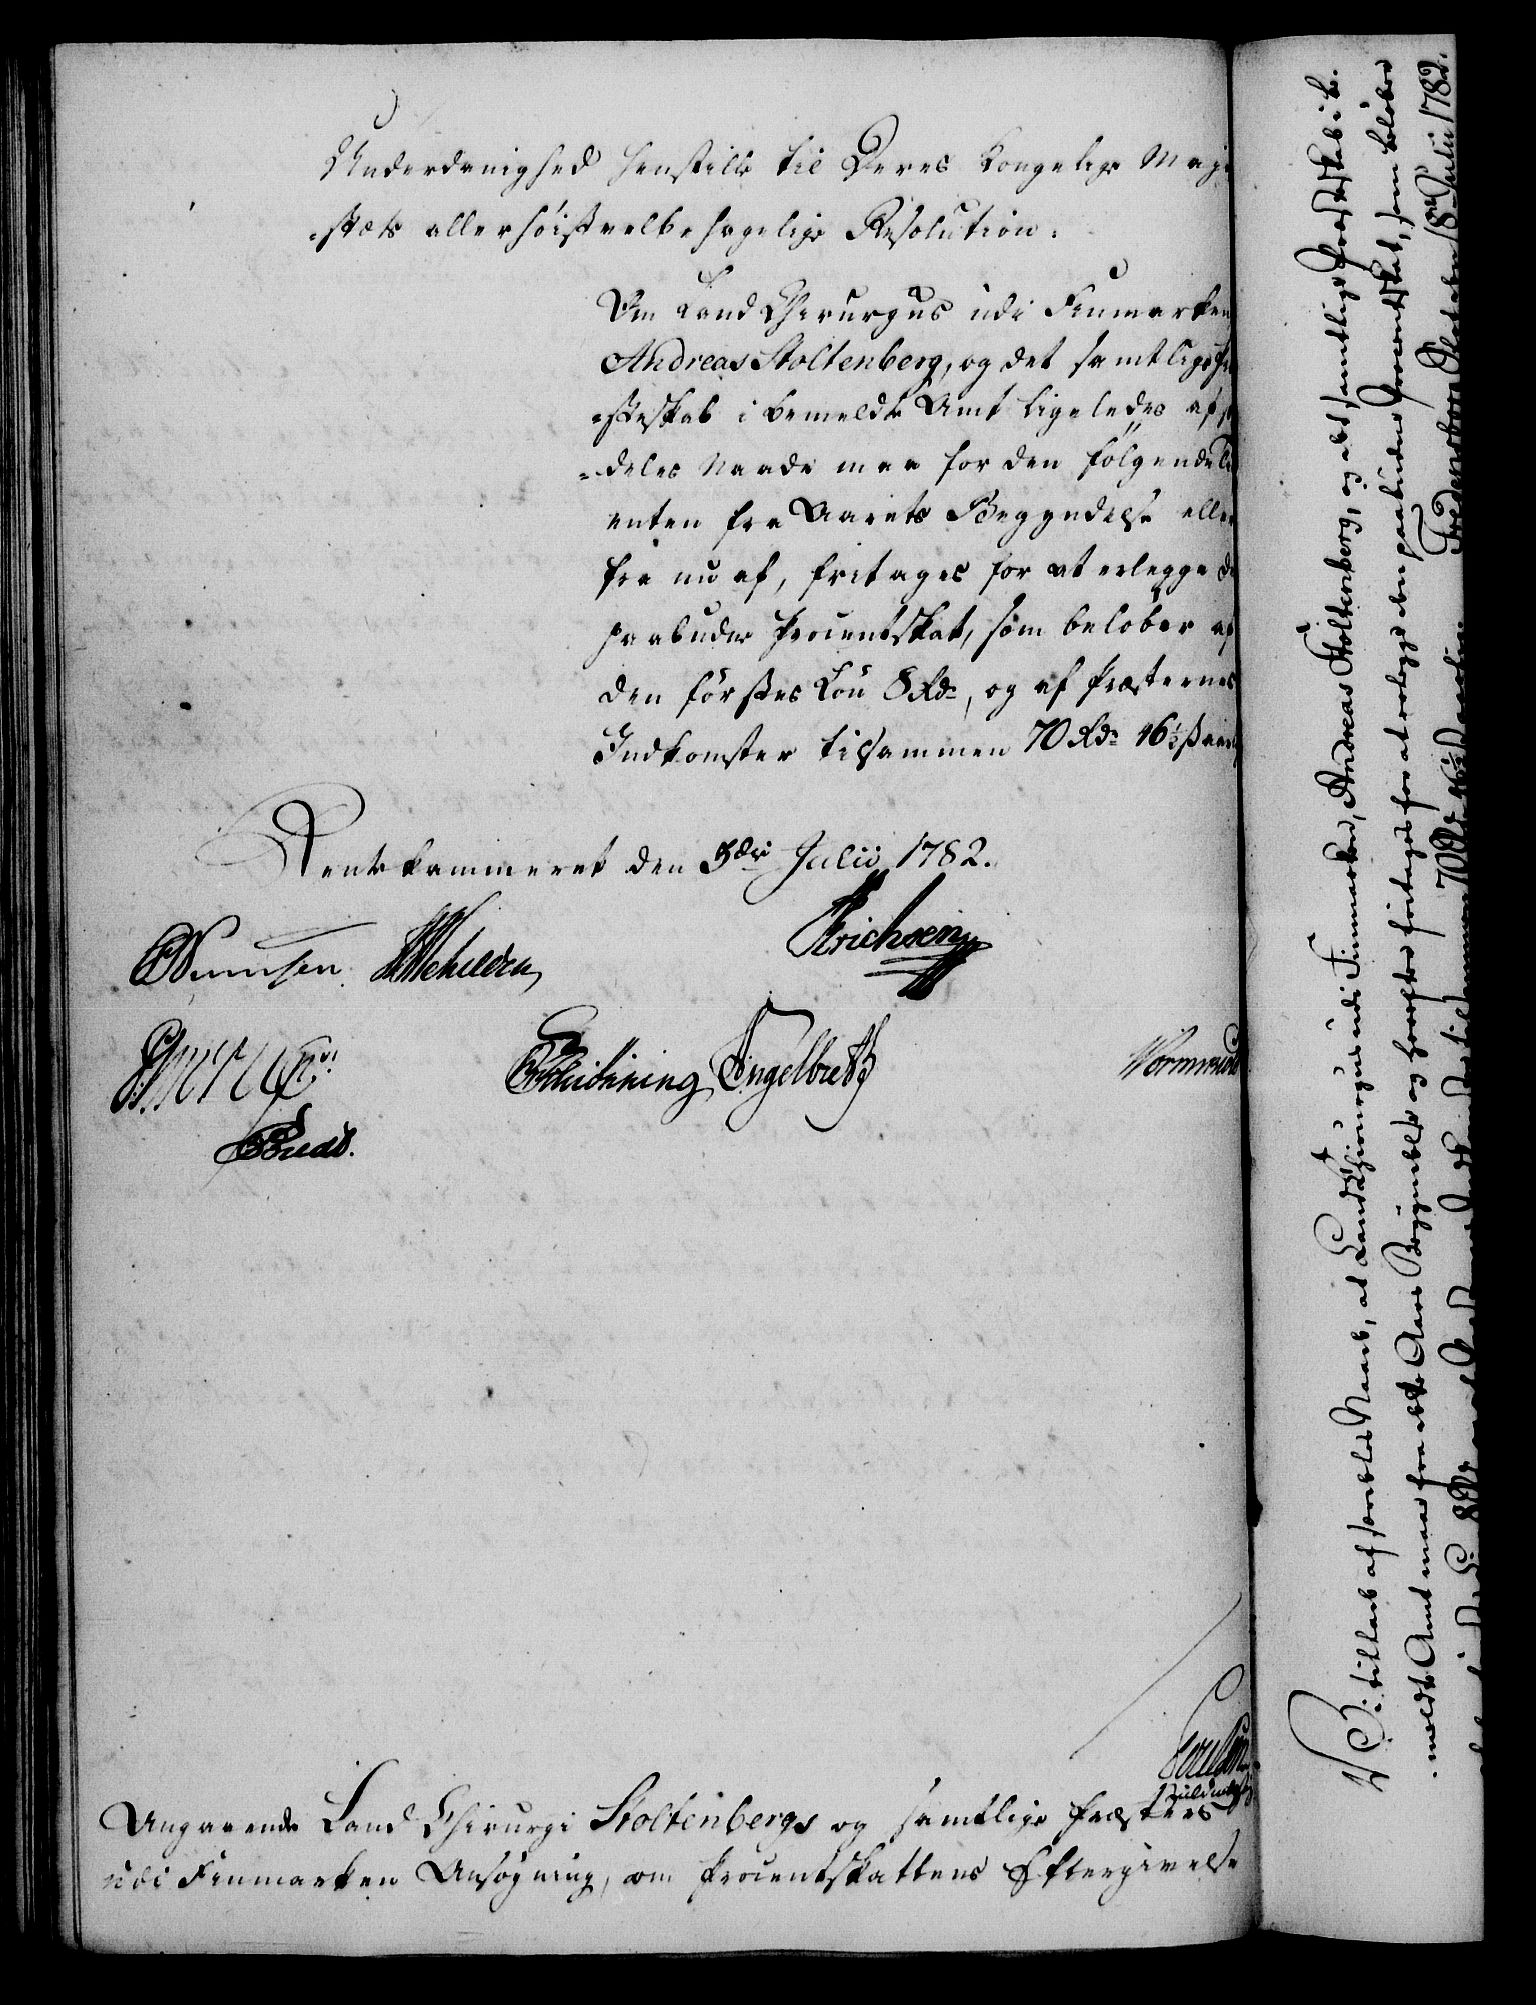 Underdanighed henstille til Deres Kongelige Maje
-stæts allerhöistvelbehagelige Resolution.
Om Land Chirurgus udi Finmarken
Andreas Stoltenberg, og det samtlige Præ
-steskab i bemeldte Amt ligeledes af sær
-deles Naade maa for den fölgende Tid
enten fra Aarets Begyndelse eller
fra nu af, fritages for at erlegge den
paabudne Procentskat, som belöber af
den förstes Lön 8 Rdr, og af Præsternes
Indkomster tilsammen 70 Rdr 46½ ß aarl
Rentekammeret den 5de Julii 1782.
Erichsen
Engelbreth
Wormskiold
Angaaende Land Chirurgi Stoltenbergs og samtlige Præsters
udi Finmarken Ansögning, om Procentskattens Eftergivelse
Vi tillade af særdeles Naade, at Landchirurgus udi Finmarken, Andreas Stoltenberg, og det samtlige Præsteskab i be-
-meldte Amt maae fra dette Aars Begyndelse og herefter fritages for at erlegge den paabudne Procentskat, som belöber
8 Rdr 70 Rdr 46½ Fredensborg Slot den 18de Julii 1782.